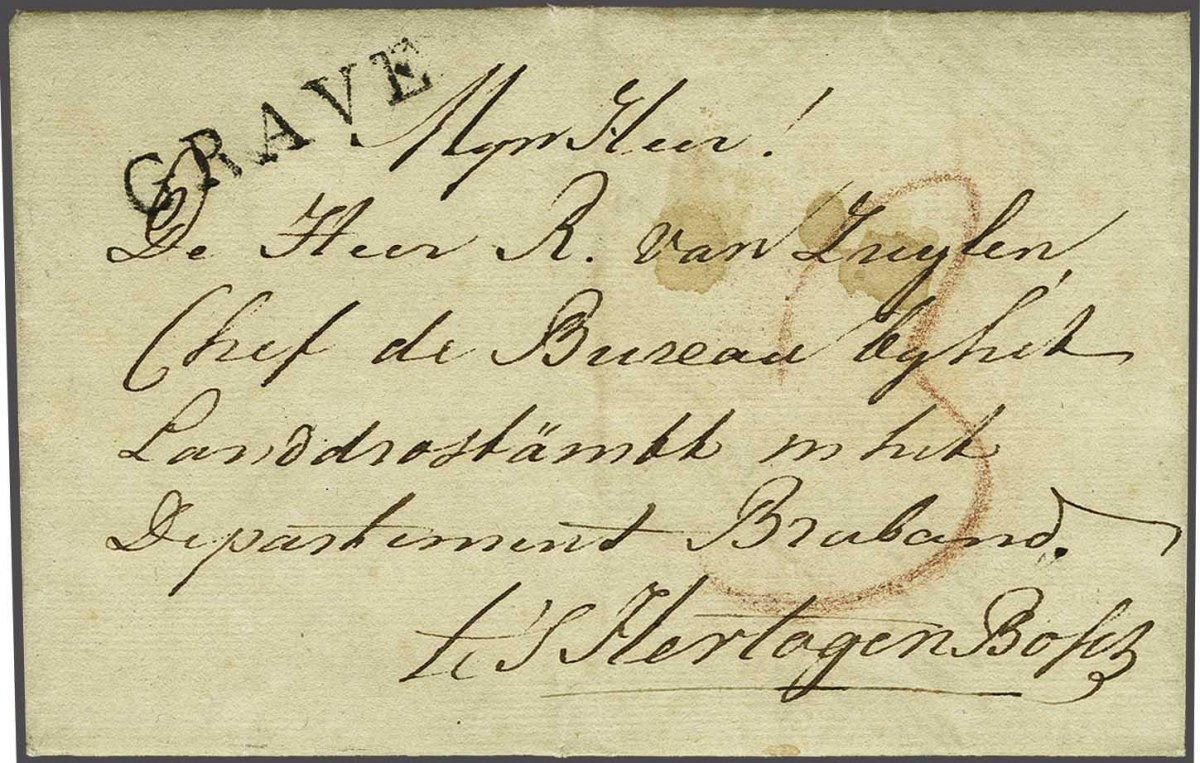 GRAVE
Myn Heer!
De Heer R. van Zuylen,
Chef de Bureau by het
Landdrostämtt in het
Departement Braband.
te 's Hertogen Bosch
3